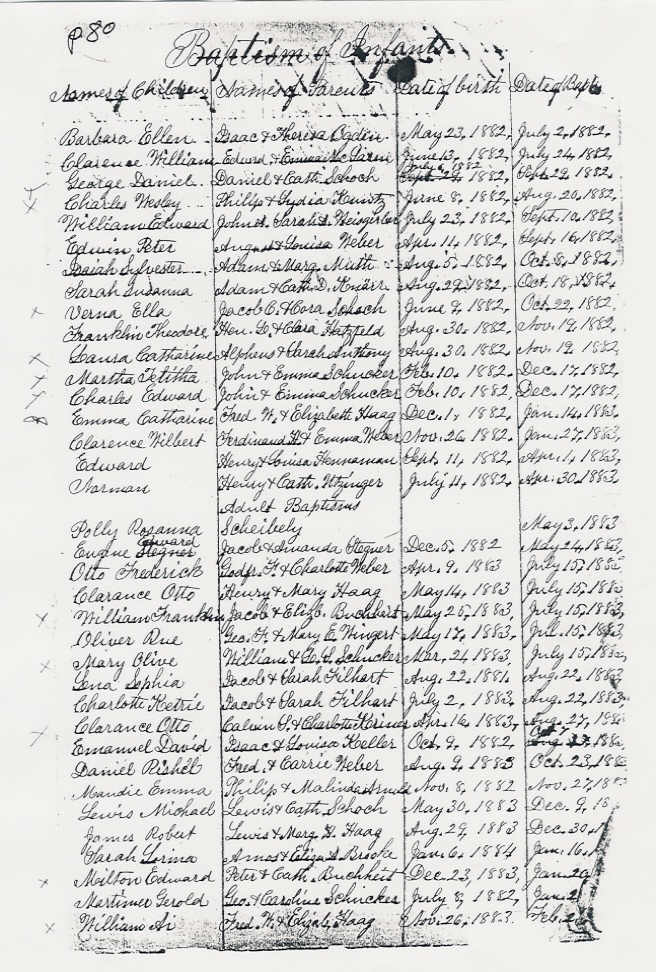 p 80
Baptism of Infants
Names of Children Names of Parents Date of birth Date of Bapt
Barbara Ellen Isaac & Theresa Ogden May 23, 1882, July 2, 1882,
Clarence William Edward & Emma June 13, 1882, July 24, 1882,
George Daniel Daniel & Cath. Schoch 1882, Sept. 29, 1882,
Charles Wesley Philip & Lydia June 8, 1882, Aug. 20, 1882,
William Edward John & Sarah A. Weisgerber July 23, 1882, Sept. 10, 1882,
Edwin Peter August & Louisa Weber Apr. 11, 1882, Sept. 16, 1882,
Isaiah Sylvester Adam & Marg. Aug. 5, 1882, Oct. 8, 1882,
Sarah Susanna Adam & Cath. D. Knarr Aug. 29, 1882, Oct. 18, 1882,
x Verna Ella Jacob C. & Cora Schoch June 9, 1882, Oct. 22, 1882
Franklin Theodore, Hen. G. & Clara Hetzfeld Aug. 30, 1882, Nov. 19, 1882,
x Laura Catharine Alpheus & Sarah Anthony Aug. 30, 1882, Nov. 19, 1882,
x Martha Tetitha John & Emma Schucker Feb. 10, 1882, Dec. 17, 1882,
x Charles Edward John & Emma Schucker Feb. 10, 1882, Dec. 17, 1882,
Emma Catharine Fred. W. & Elizabeth Haag Dec. 1, 1882, Jan. 14, 1883,
Clarence Wilbert Ferdinand H. & Emma Weber Nov. 26, 1882, Jan. 27, 1883,
Edward Henry & Louisa Henneman Sept. 11, 1882, Apr. 1, 1883,
Norman Henry & Cath. Utzinger July 4, 1882, Apr. 30, 1883,
Adult Baptisms
Polly Rosanna Scheibely May 3, 1883
Edward
Eugene Stegner Jacob & Amanda Stegner Dec. 5, 1882 May 24, 1883,
Otto Frederick Godfr. F. & Charlotte Weber Apr. 9, 1883 July 15, 1883
Clarance Otto Henry & Mary Haag May 14, 1883 July 15, 1883
x William Franklin Jacob & Elizb. Buchheit May 25, 1883, July 15, 1883,
Oliver Rue Geo. F. & Mary E. Wingert May 17, 1883, Jul. 15, 1883,
x Mary Olive William & Schucker Mar. 24, 1883, July 15, 1883,
Lena Sophia Jacob & Sarah Filhart Aug. 22, 1881, Aug. 22, 1883
Charlotte Ketrie Jacob & Sarah Filhart July 2, 1883, Aug. 22, 1883,
x Clarance Otto Calvin S. & Charlotte Apr. 16, 1883, Aug. 27, 188
Emanuel David Isaac & Louisa Keller Oct. 9, 1882, Oct. 7 188
Daniel Rishel Fred. & Carrie Weber Aug. 9, 1883 Oct. 23, 188
Maudie Emma Philip & Malinda Nov. 8, 1882 Nov. 27, 188
Lewis Michael Lewis & Cath. Schoch May 30, 1883 Dec. 9, 18
James Robert Lewis & Marg. H. Haag Aug. 29, 1883 Dec. 30, 1
Sarah Lorina Amos & Eliza A. Brooke Jan. 6, 1884 Jan. 16, 1
x Milton Edward Peter & Cath. Buchheit Dec. 23, 1883, Jan. 20
Martimer Gerold Geo. & Caroline Schucker July 8, 1882, Jan. 2
x William Ai Fred. W. & Elizab. Haag Nov. 26, 1883. Feb. 2